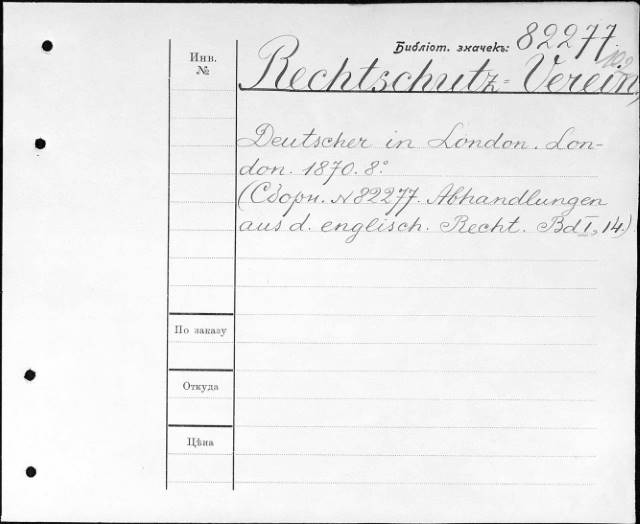 Библіот. значекъ: 82277.
Инв.
№
Rechtschutz=Verein,
Deutscher in London. Lon-
don. 1870. 8°.
(Сборн. №82277. Abhandlungen
aus d. englisch. Recht. Bd I, 14.)
По заказу
Откуда
Цѣна